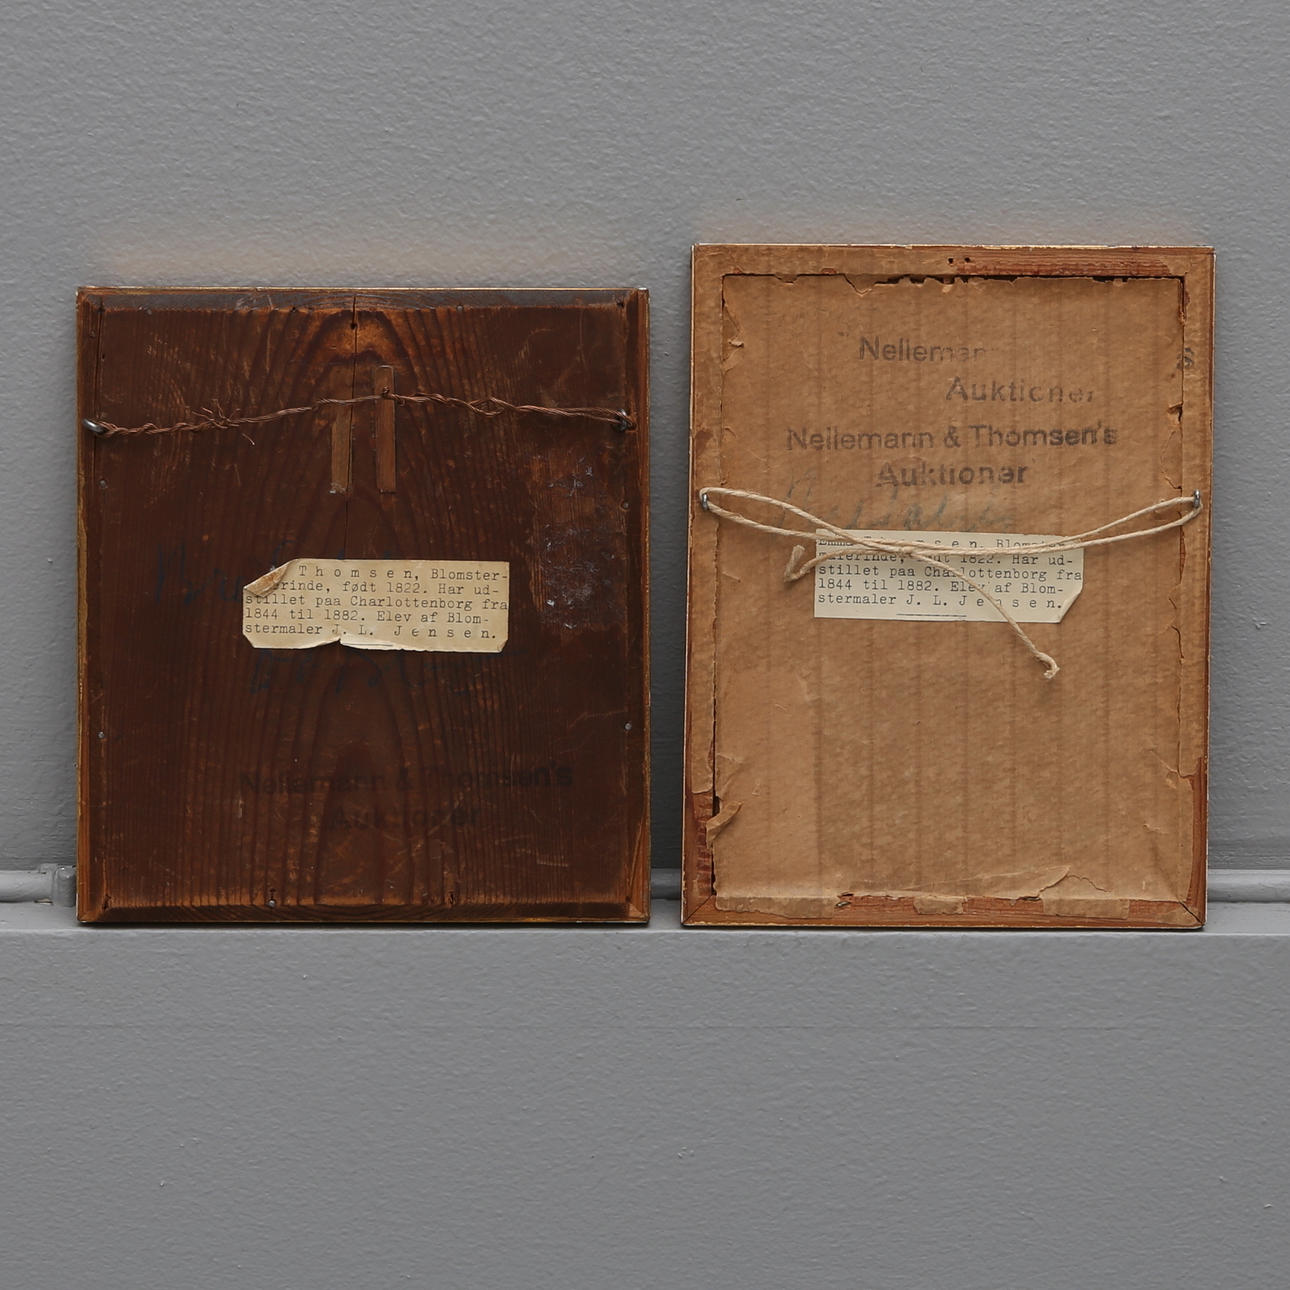 Thomsen, Blomster-
erinde, født 1822. Har ud-
stillet paa Charlottenborg fra
1844 til 1882. Elev af Blom-
stermaler J. L. Jensen.
Nellemann & Thomsen's
Auktioner
Nelleman s
Auktioner
Nellemann & Thomsen's
Auktioner
sen, Blomster
malerinde, født 1822. Har ud-
stillet paa Charlottenborg fra
1844 til 1882. Elev af Blom-
stermaler J. L. Jensen.